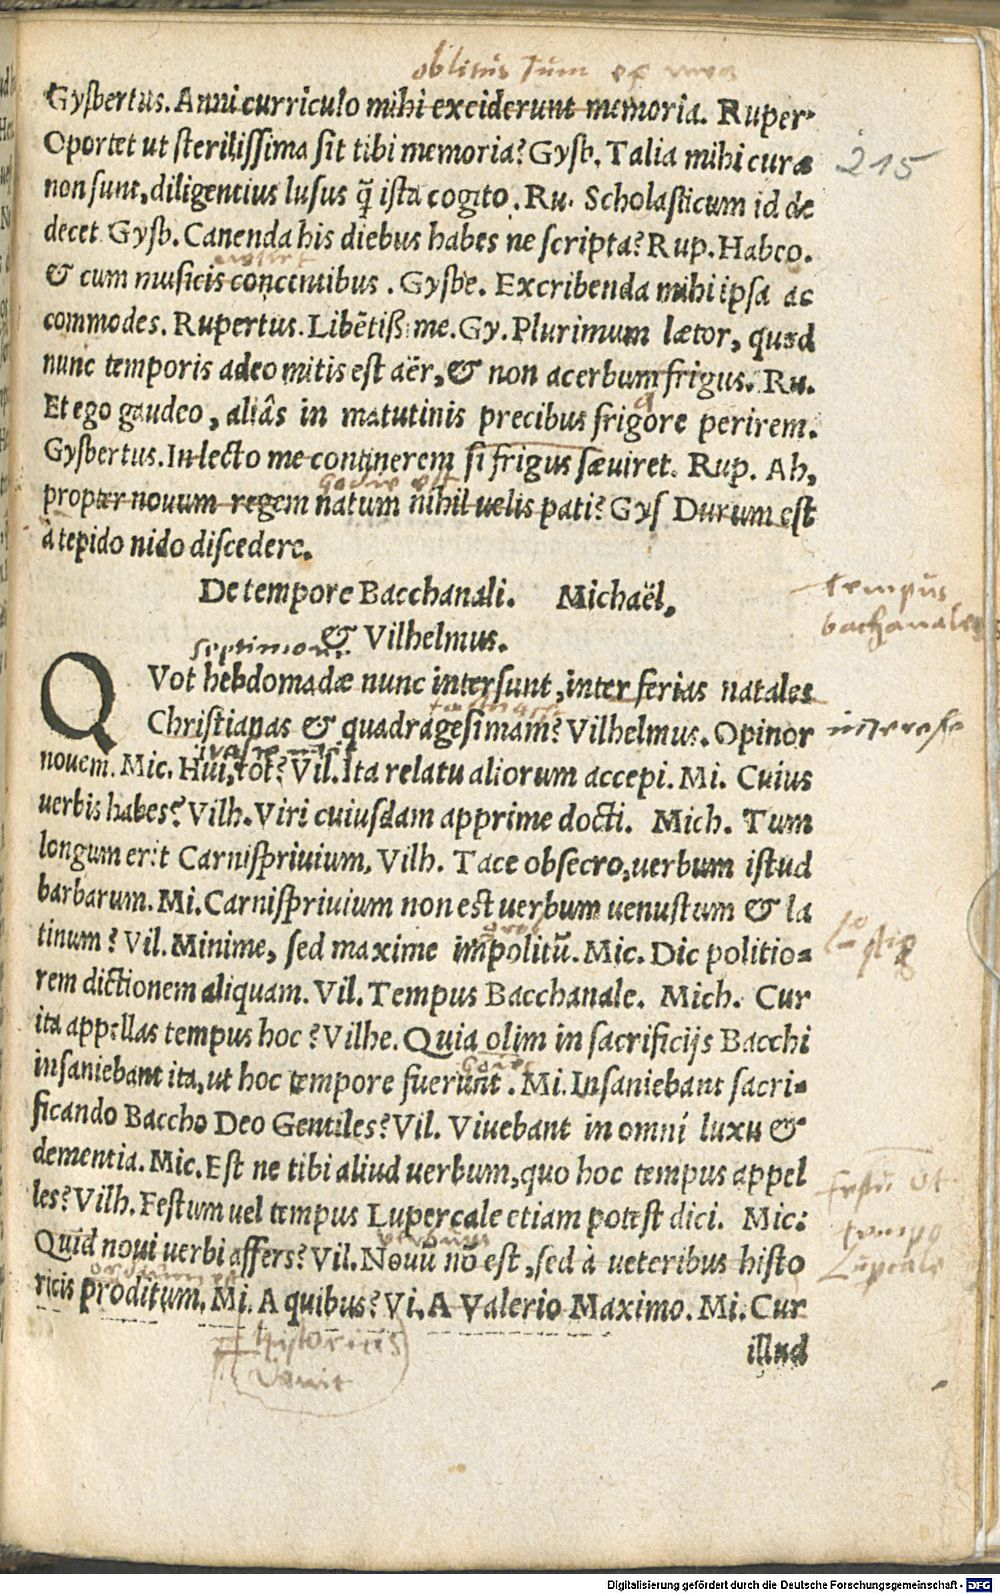 oblitus sum ex mea
Gysbertus. Anni curriculo mihi exciderunt memoria. Ruper-
Oportet ut sterilissima sit tibi memoria? Gysb. Talia mihi curæ
215
non sunt, diligentius lusus q̃ ista cogito. Ru. Scholasticum id de
decet Gysb. Canenda his diebus habes ne scripta? Rup. Habeo.
& cum musicis concentibus. Gysbe. Excribenda mihi ipsa ac
commodes. Rupertus. Libētiß me. Gy. Plurimum lætor, quod
nunc temporis adeo mitis est aër, & non acerbum frigus. Ru.
Et ego gaudeo, aliâs in matutinis precibus frigore perirem.
Gysbertus. In lecto me continerem si frigus sæuiret. Rup. Ah,
propter nouum regem natum nihil uelis pati? Gys Durum est
à tepido nido discedere.
De tempore Bacchanali. Michaël,
& Vilhelmus.
tempus
bachanales
septimanae
QVot hebdomadæ nunc intersunt, inter ferias natales
Christianas & quadragesimam? Vilhelmus. Opinor
interesse
nouem. Mic. Hui, tot? Vil. Ita relatu aliorum accepi. Mi. Cuius
uerbis habes? Vilh. Viri cuiusdam apprime docti. Mich. Tum
longum erit Carnispriuium, Vilh. Tace obsecro, uerbum istud
barbarum. Mi. Carnispriuium non est uerbum uenustum & la
tinum? Vil. Minime, sed maxime impolitū. Mic. Dic politio-
rem dictionem aliquam. Vil. Tempus Bacchanale. Mich. Cur
ita appellas tempus hoc? Vilhe. Quia olim in sacrificijs Bacchi
insaniebant ita, ut hoc tempore fuerunt. Mi. Insaniebant sacri-
ficando Baccho Deo Gentiles? Vil. Viuebant in omni luxu &
dementia. Mic. Est ne tibi aliud uerbum, quo hoc tempus appel
les? Vilh. Festum uel tempus Lupercale etiam potest dici. Mic:
tempus
Lupercale
Quid noui uerbi affers? Vil. Nouū nō est, sed à ueteribus histo
ricis proditum. Mi. A quibus? Vi. A Valerio Maximo. Mi. Cur
illud
Digitalisierung gefördert durch die Deutsche Forschungsgemeinschaft - DFG